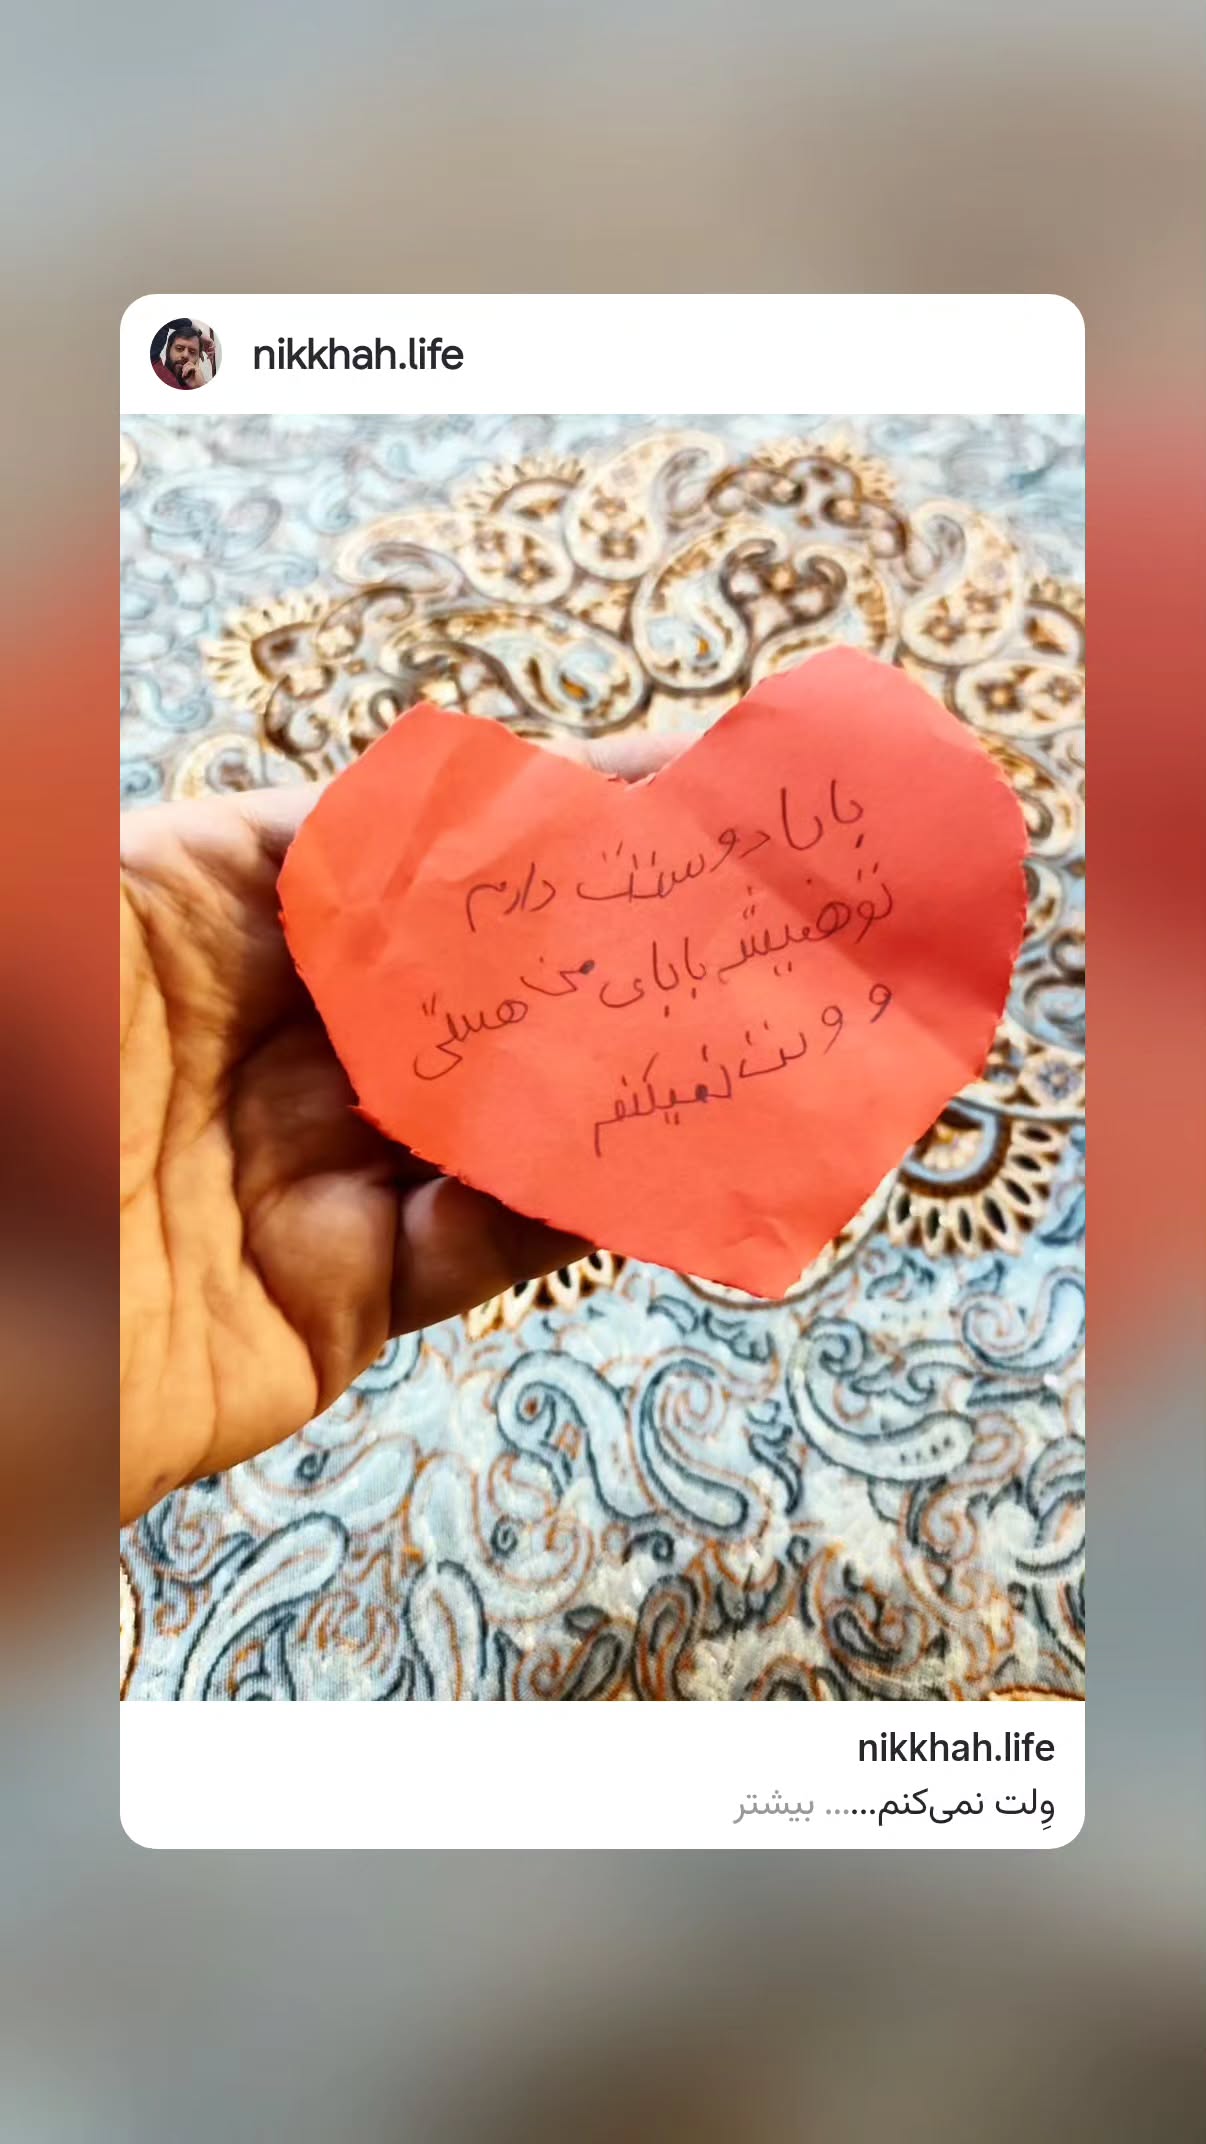 nikkhah.life
بابا دوستت دارم
تو همیشه بابای من هستی
و ولت نمیکنم
nikkhah.life
وِلت نمی‌کنم...... بیشتر